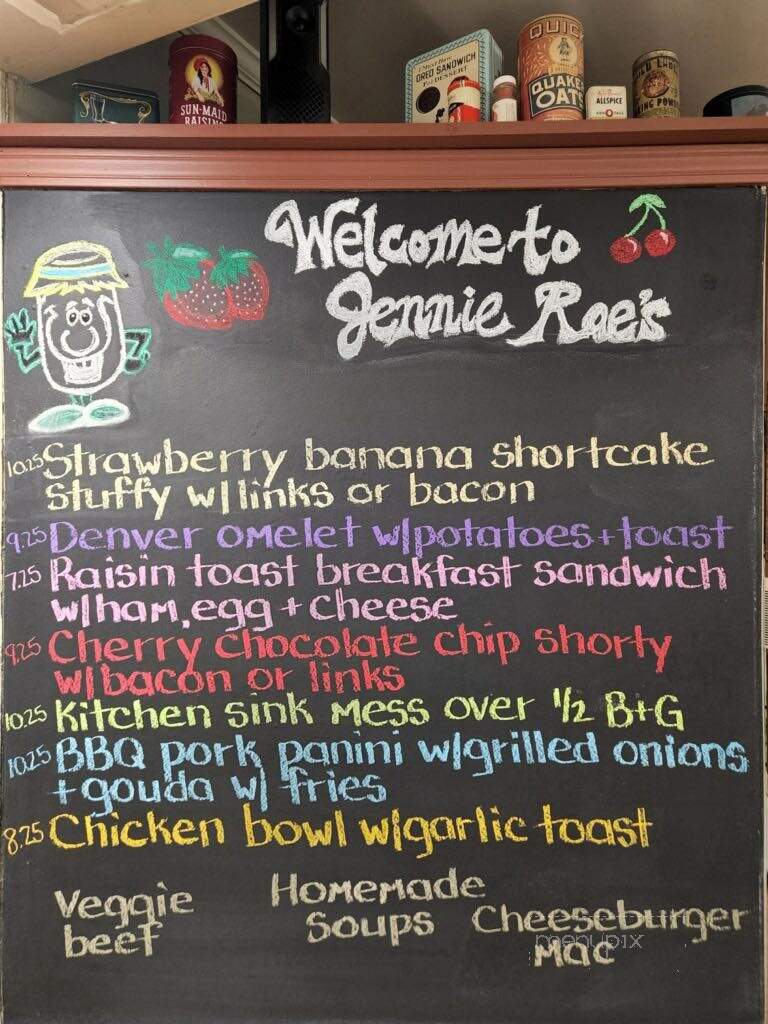 SUN-MAID
RAISINS
OREO SANDWICH
For DESSERT
QUICK
QUAKER
OATS
ALLSPICE
Welcome to
Jennie Rae's
10.25 Strawberry banana shortcake
stuffy w/links or bacon
9.25 Denver omelet w/potatoes + toast
7.25 Raisin toast breakfast sandwich
w/ham, egg + cheese
9.25 Cherry chocolate chip shorty
w/bacon or links
10.25 Kitchen sink mess over 1/2 B+G
10.25 BBQ pork panini w/grilled onions
+ gouda w/ fries
8.25 Chicken bowl w/garlic toast
Veggie
beef
Homemade
Soups
Cheeseburger
mac
menupix